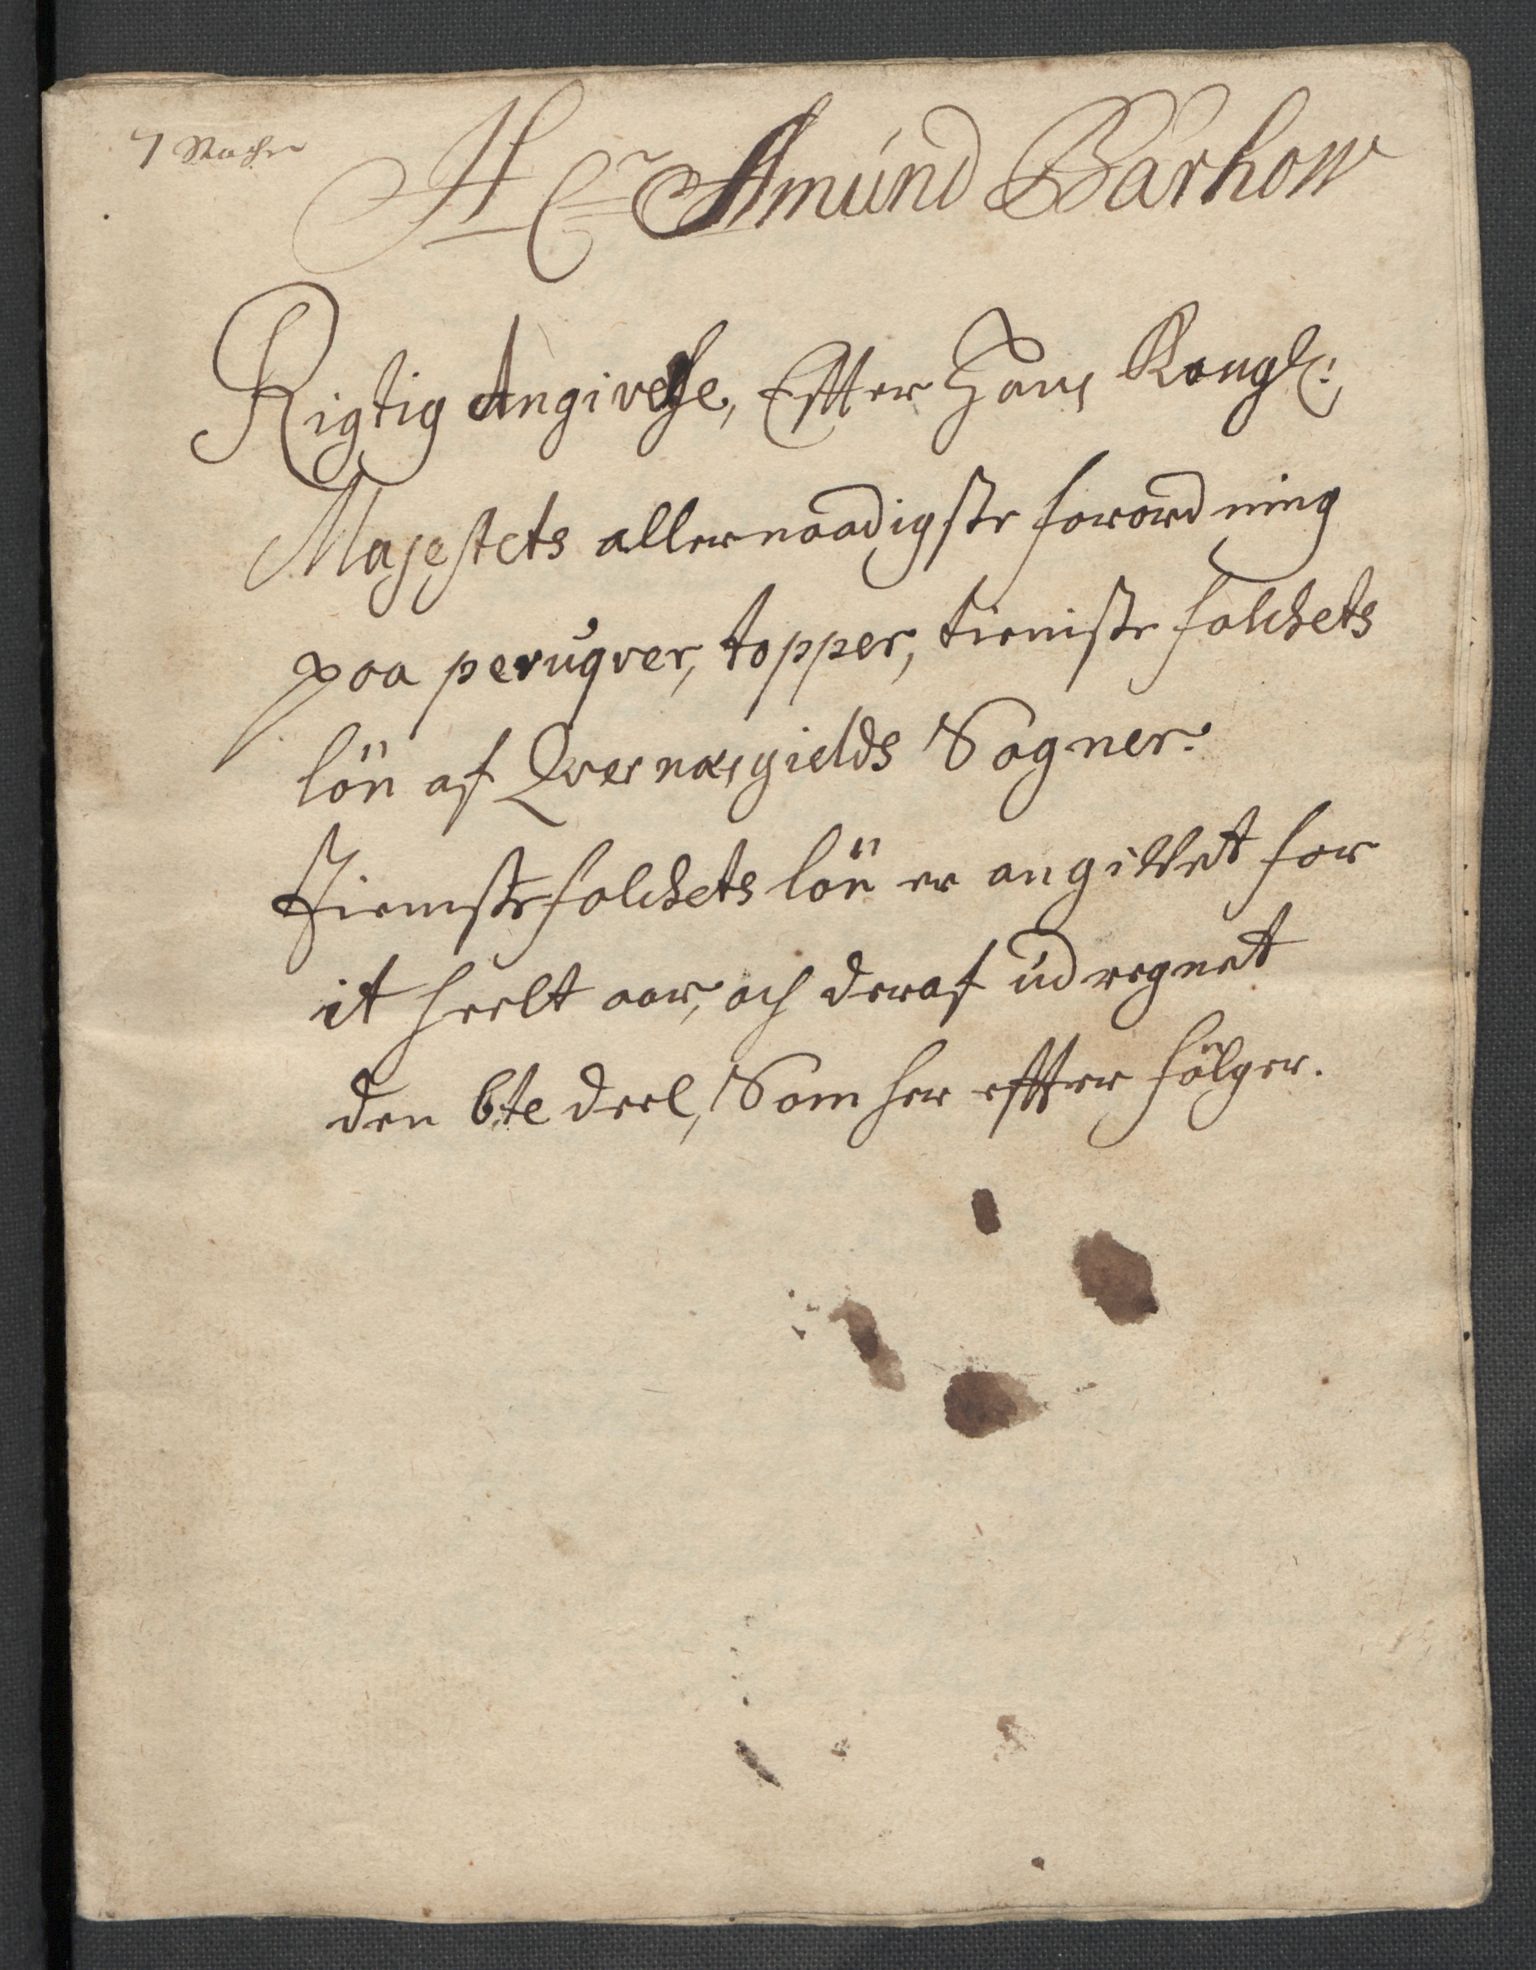 H Er Amund Barhow
Rigtig Angivelse, Effter Hans Kongl:
Majestets allernaadigste forordning
paa peruqver, topper, tieniste folckets
lön af Qvernæsgields Sogner.
Tienistefolckets lön er angivet for
it heelt aar, och deraf udregnet
den 6te deel, Som her effter fölger.